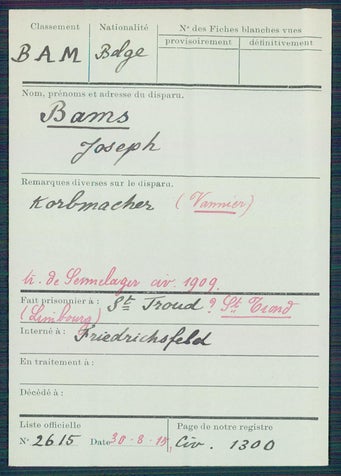 Classement
Nationalité
Nos des Fiches blanches vues
provisoirement
définitivement
BAM
Belge
Nom, prénoms et adresse du disparu.
Bams
Joseph
Remarques diverses sur le disparu.
Korbmacher (Vannier)
tr. de Sennelager civ. 1909.
Fait prisonnier à : St Troud ? St Trond
(Limbourg)
Interné à : Friedrichsfeld
En traitement à :
Décédé à :
Liste officielle
No 2615 Date 30-8-15,
Page de notre registre
Civ. 1300